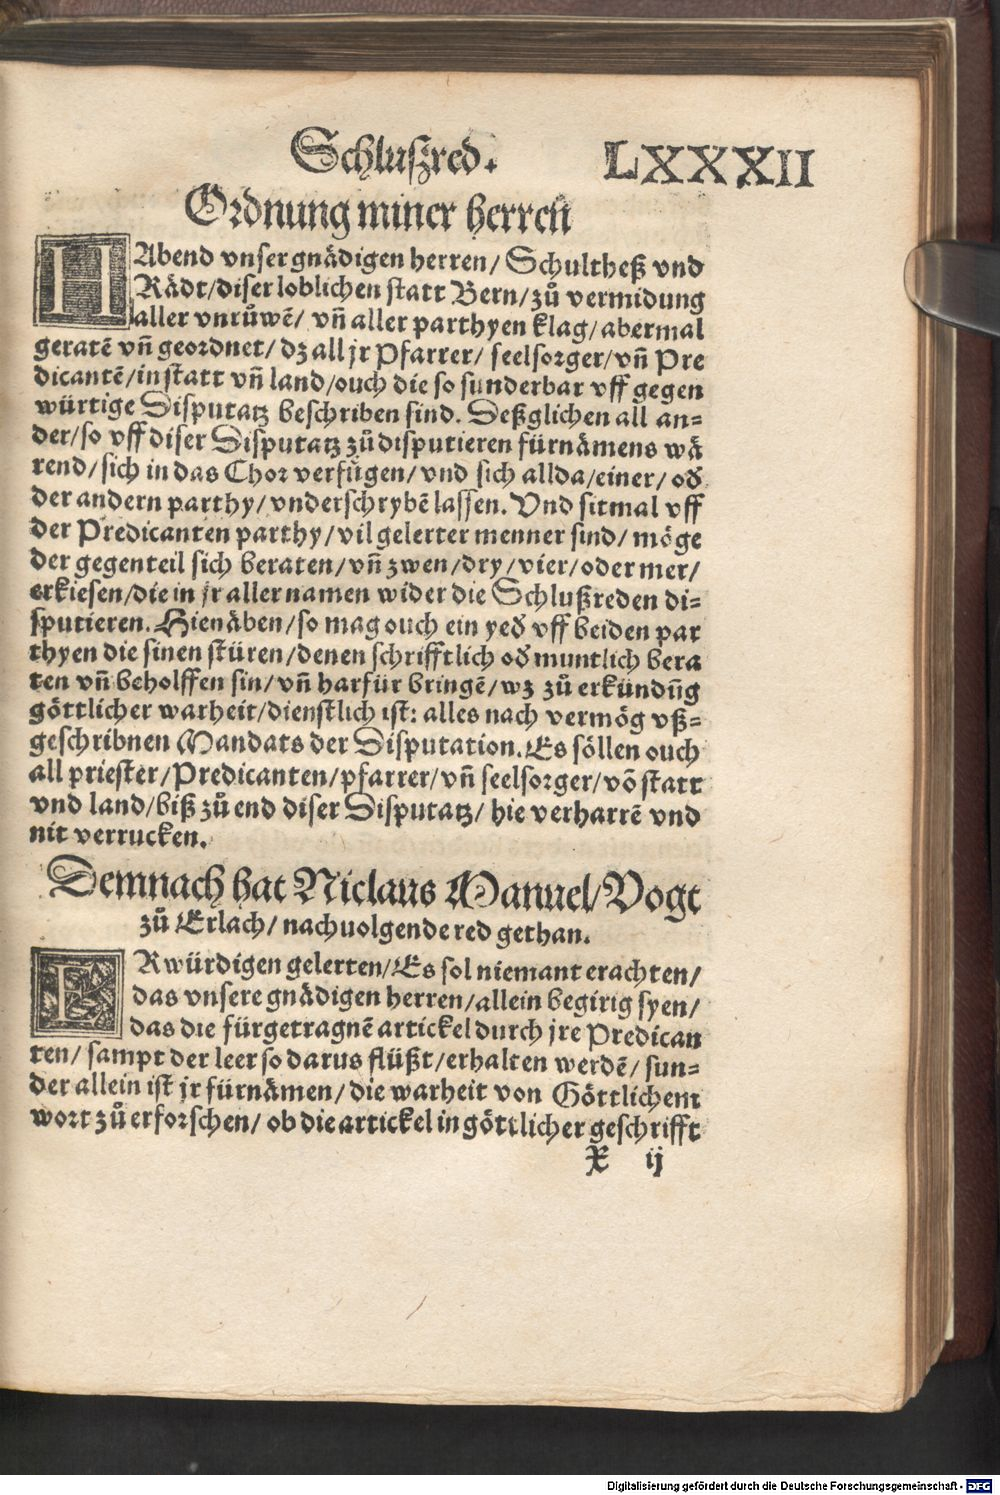 Schluſzred.
LXXXII
Ordnung miner herren
HAbend vnser gnädigen herren/ Schultheß vnd
Rädt/diser loblichen statt Bern/ zů vermidung
aller vnrůwē/ vñ aller parthyen klag/ abermal
geratē vñ geordnet/ dz all jr Pfarrer/ seelsorger/ vñ Pre
dicantē/in statt vñ land/ouch die so sunderbar vff gegen
würtige Disputatz beschriben sind. Deßglichen all an=
der/so vff diser Disputatz zů disputieren fürnämens wä
rend/sich in das Chor verfügen/ vnd sich allda/einer/ oď
der andern parthy/ vnderschrybē lassen. Vnd sitmal vff
der Predicanten parthy/ vil gelerter menner sind/ möge
der gegenteil sich beraten/ vñ zwen/dry/ vier/ oder mer/
erkiesen/die in jr aller namen wider die Schlußreden di=
sputieren. Hienäben/so mag ouch ein yeď vff beiden par
thyen die sinen stüren/denen schrifftlich oď muntlich bera
ten vñ beholffen sin/ vñ harfür bringē/ wz zů erkündñg
göttlicher warheit/dienstlich ist: alles nach vermög vß=
geschribnen Mandats der Disputation. Es söllen ouch
all priester/Predicanten/pfarrer/ vñ seelsorger/ vō statt
vnd land/biß zů end diser Disputatz/ hie verharrē vnd
nit verrucken.
Demnach hat Niclaus Manuel/Vogt
zů Erlach/ nachuolgende red gethan.
ERwürdigen gelerten/Es sol niemant erachten/
das vnsere gnädigen herren/allein begirig syen/
das die fürgetragnē artickel durch jre Predican
ten/ sampt der leer so darus flüßt/erhalten werdē/ sun=
der allein ist jr fürnämen/ die warheit von Göttlichem
wort zů erforschen/ ob die artickel in göttlicher geschrifft
X ij
Digitalisierung gefördert durch die Deutsche Forschungsgemeinschaft - DFG